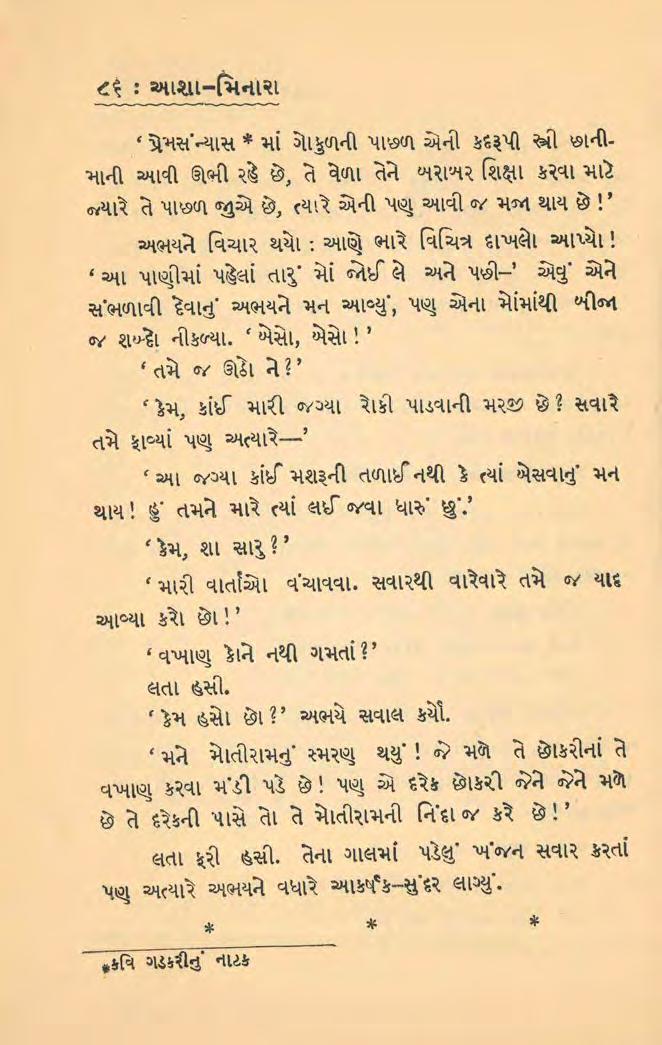 ૮૬ : આશા–મિનારા
‘ પ્રેમસંન્યાસ * માં ગોકુળની પાછળ એની કદરૂપી સ્ત્રી છાની-
માની આવી ઊભી રહે છે, તે વેળા તેને બરાબર શિક્ષા કરવા માટે
જ્યારે તે પાછળ જુએ છે, ત્યારે એની પણ આવી જ મજા થાય છે !’
અભયને વિચાર થયો : આણે ભારે વિચિત્ર દાખલો આપ્યો !
‘ આ પાણીમાં પહેલાં તારું મોં જોઈ લે અને પછી–’ એવું એને
સંભળાવી દેવાનું અભયને મન આવ્યું, પણ એના મોંમાંથી બીજા
જ શબ્દો નીકળ્યા. ‘ બેસો, બેસો ! ’
‘ તમે જ ઊઠો ને ?’
‘ કેમ, કાંઈ મારી જગ્યા રોકી પાડવાની મરજી છે ? સવારે
તમે ફાવ્યાં પણ અત્યારે—’
‘ આ જગ્યા કાંઈ મશરૂની તળાઈ નથી કે ત્યાં બેસવાનું મન
થાય ! હું તમને મારે ત્યાં લઈ જવા ધારું છું.’
‘ કેમ, શા સારુ ?’
‘ મારી વાર્તાઓ વંચાવવા. સવારથી વારેવારે તમે જ યાદ
આવ્યા કરો છો !’
‘ વખાણ કોને નથી ગમતાં ?’
લતા હસી.
‘ કેમ હસો છો ?’ અભયે સવાલ કર્યો.
‘ મને મોતીરામનું સ્મરણ થયું ! જે મળે તે છોકરીનાં તે
વખાણ કરવા મંડી પડે છે ! પણ એ દરેક છોકરી જેને જેને મળે
છે તે દરેકની પાસે તો તે મોતીરામની નિંદા જ કરે છે ! ’
લતા ફરી હસી. તેના ગાલમાં પડેલું ખંજન સવાર કરતાં
પણ અત્યારે અભયને વધારે આકર્ષક–સુંદર લાગ્યું.
* * *
*કવિ ગડકરીનું નાટક